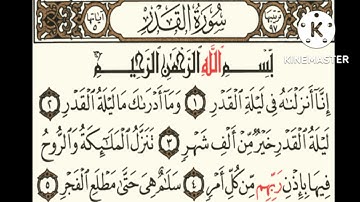 ترتيبها ٩٧
سُورَةُ الْقَدْرِ
آياتها ٥
KINEMASTER
بِسْمِ اللَّهِ الرَّحْمَٰنِ الرَّحِيمِ
إِنَّا أَنزَلْنَٰهُ فِى لَيْلَةِ ٱلْقَدْرِ ١ وَمَآ أَدْرَىٰكَ مَا لَيْلَةُ ٱلْقَدْرِ ٢
لَيْلَةُ ٱلْقَدْرِ خَيْرٌ مِّنْ أَلْفِ شَهْرٍ ٣ تَنَزَّلُ ٱلْمَلَٰٓئِكَةُ وَٱلرُّوحُ
فِيهَا بِإِذْنِ رَبِّهِم مِّن كُلِّ أَمْرٍ ٤ سَلَٰمٌ هِىَ حَتَّىٰ مَطْلَعِ ٱلْفَجْرِ ٥